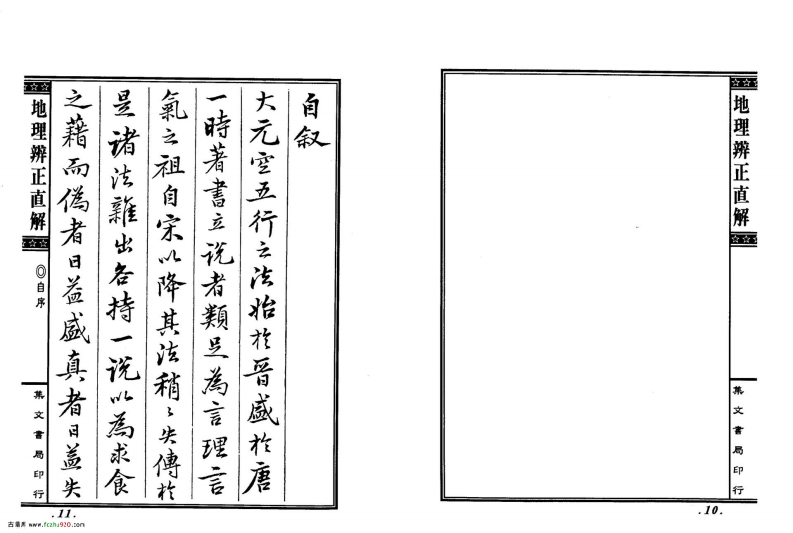 地理辨正直解
集文書局印行
.10.
自叙
大元空五行之法始於晉盛於唐
一時著書立說者類足為言理言
氣之祖自宋以降其法稍〻失傳於
是諸法雜出各持一說以為求食
之藉而偽者日益盛真者日益失
地理辨正直解
◎自序
集文書局印行
.11.
古籍库 www.fczhu920.com